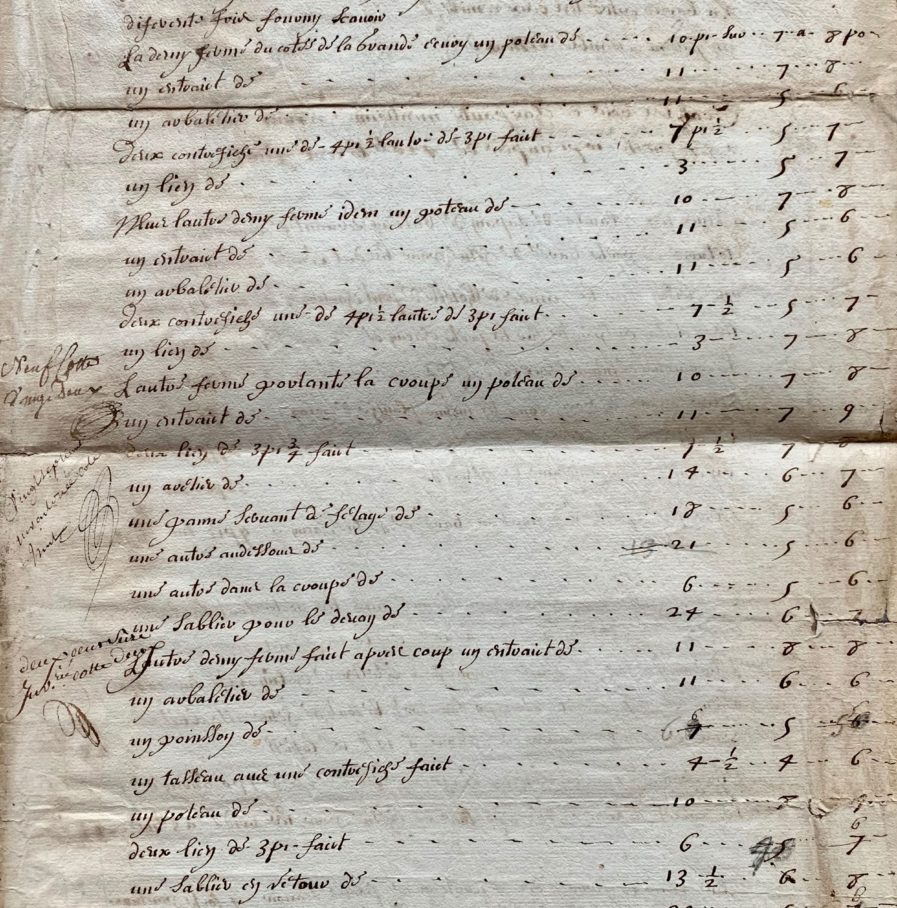 diferente foix fourny Scavoir
La demy ferme du cotee de la Grande cour un poteau de 10 pi sur 7 a 8 po
un entrait de 11 7 8
un arbaletier de 11 5 6
deux contrefiche une de 4 pi ½ lautre de 3 pi fait 7 pi ½ 5 7
un lien de 3 5 7
Plus lautre demy ferme idem un poteau de 10 7 8
un entrait de 11 5 6
un arbaletier de 11 5 6
deux contrefiche une de 4 pi ½ lautre de 3 pi fait 7 ½ 5 7
un lien de 3 7 8
Lautre ferme portante la croupe un poteau de 10 7 8
un entrait de 11 7 9
deux lien de 3 pi ¾ fait 7 ½ 7 8
un avelier de 14 6 7
une panne servant de fetage de 18 5 6
une autre audessous de 21 5 6
une autre dans la croupe de 6 5 6
une Sablier pour le devan de 24 6 7
Lautre demy ferme fait apres coup un entrait de 11 8 8
un arbaletier de 11 6 6
un poinsson de 5 6
un tasseau avec une contrefiche fait 4 ½ 4 6
un poteau de 10 8 9
deux lien de 3 pi fait 6 5 7
une Sablier en retour de 13 ½ 6 8
Neuf Cotte
Vingt Deux
cotte
huit
cotte deux